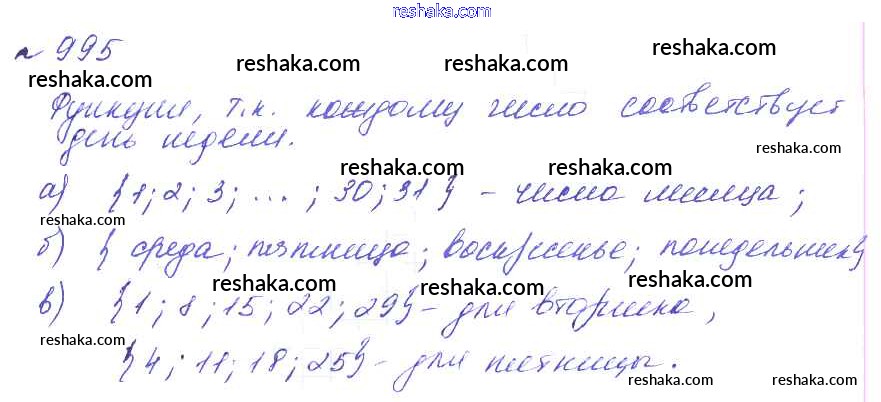 reshaka.com
№ 995
reshaka.com reshaka.com reshaka.com reshaka.com
Функция, т.к. каждому число соответствует
день недели.
reshaka.com reshaka.com reshaka.com
а) {1; 2; 3; ... ; 30; 31} - числа месяца;
reshaka.com
б) { среда; пятница; воскресенье; понедельник}
reshaka.com reshaka.com reshaka.com
в) {1; 8; 15; 22; 29} - для вторника,
reshaka.com
{4; 11; 18; 25} - для пятницы.
reshaka.com reshaka.com reshaka.com